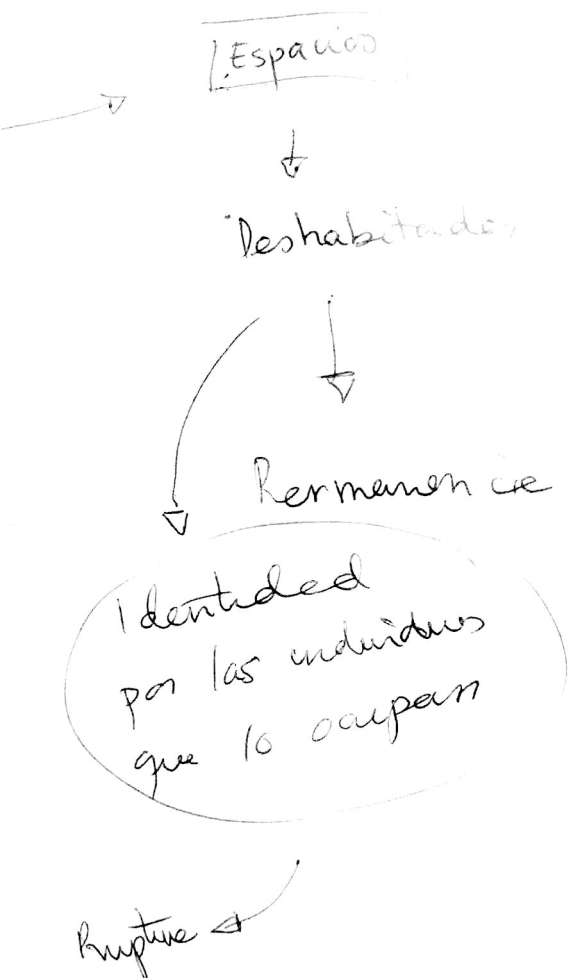 Espacios
Deshabitados
Permanencia
Identidad
por los individuos
que lo ocupan
Ruptura